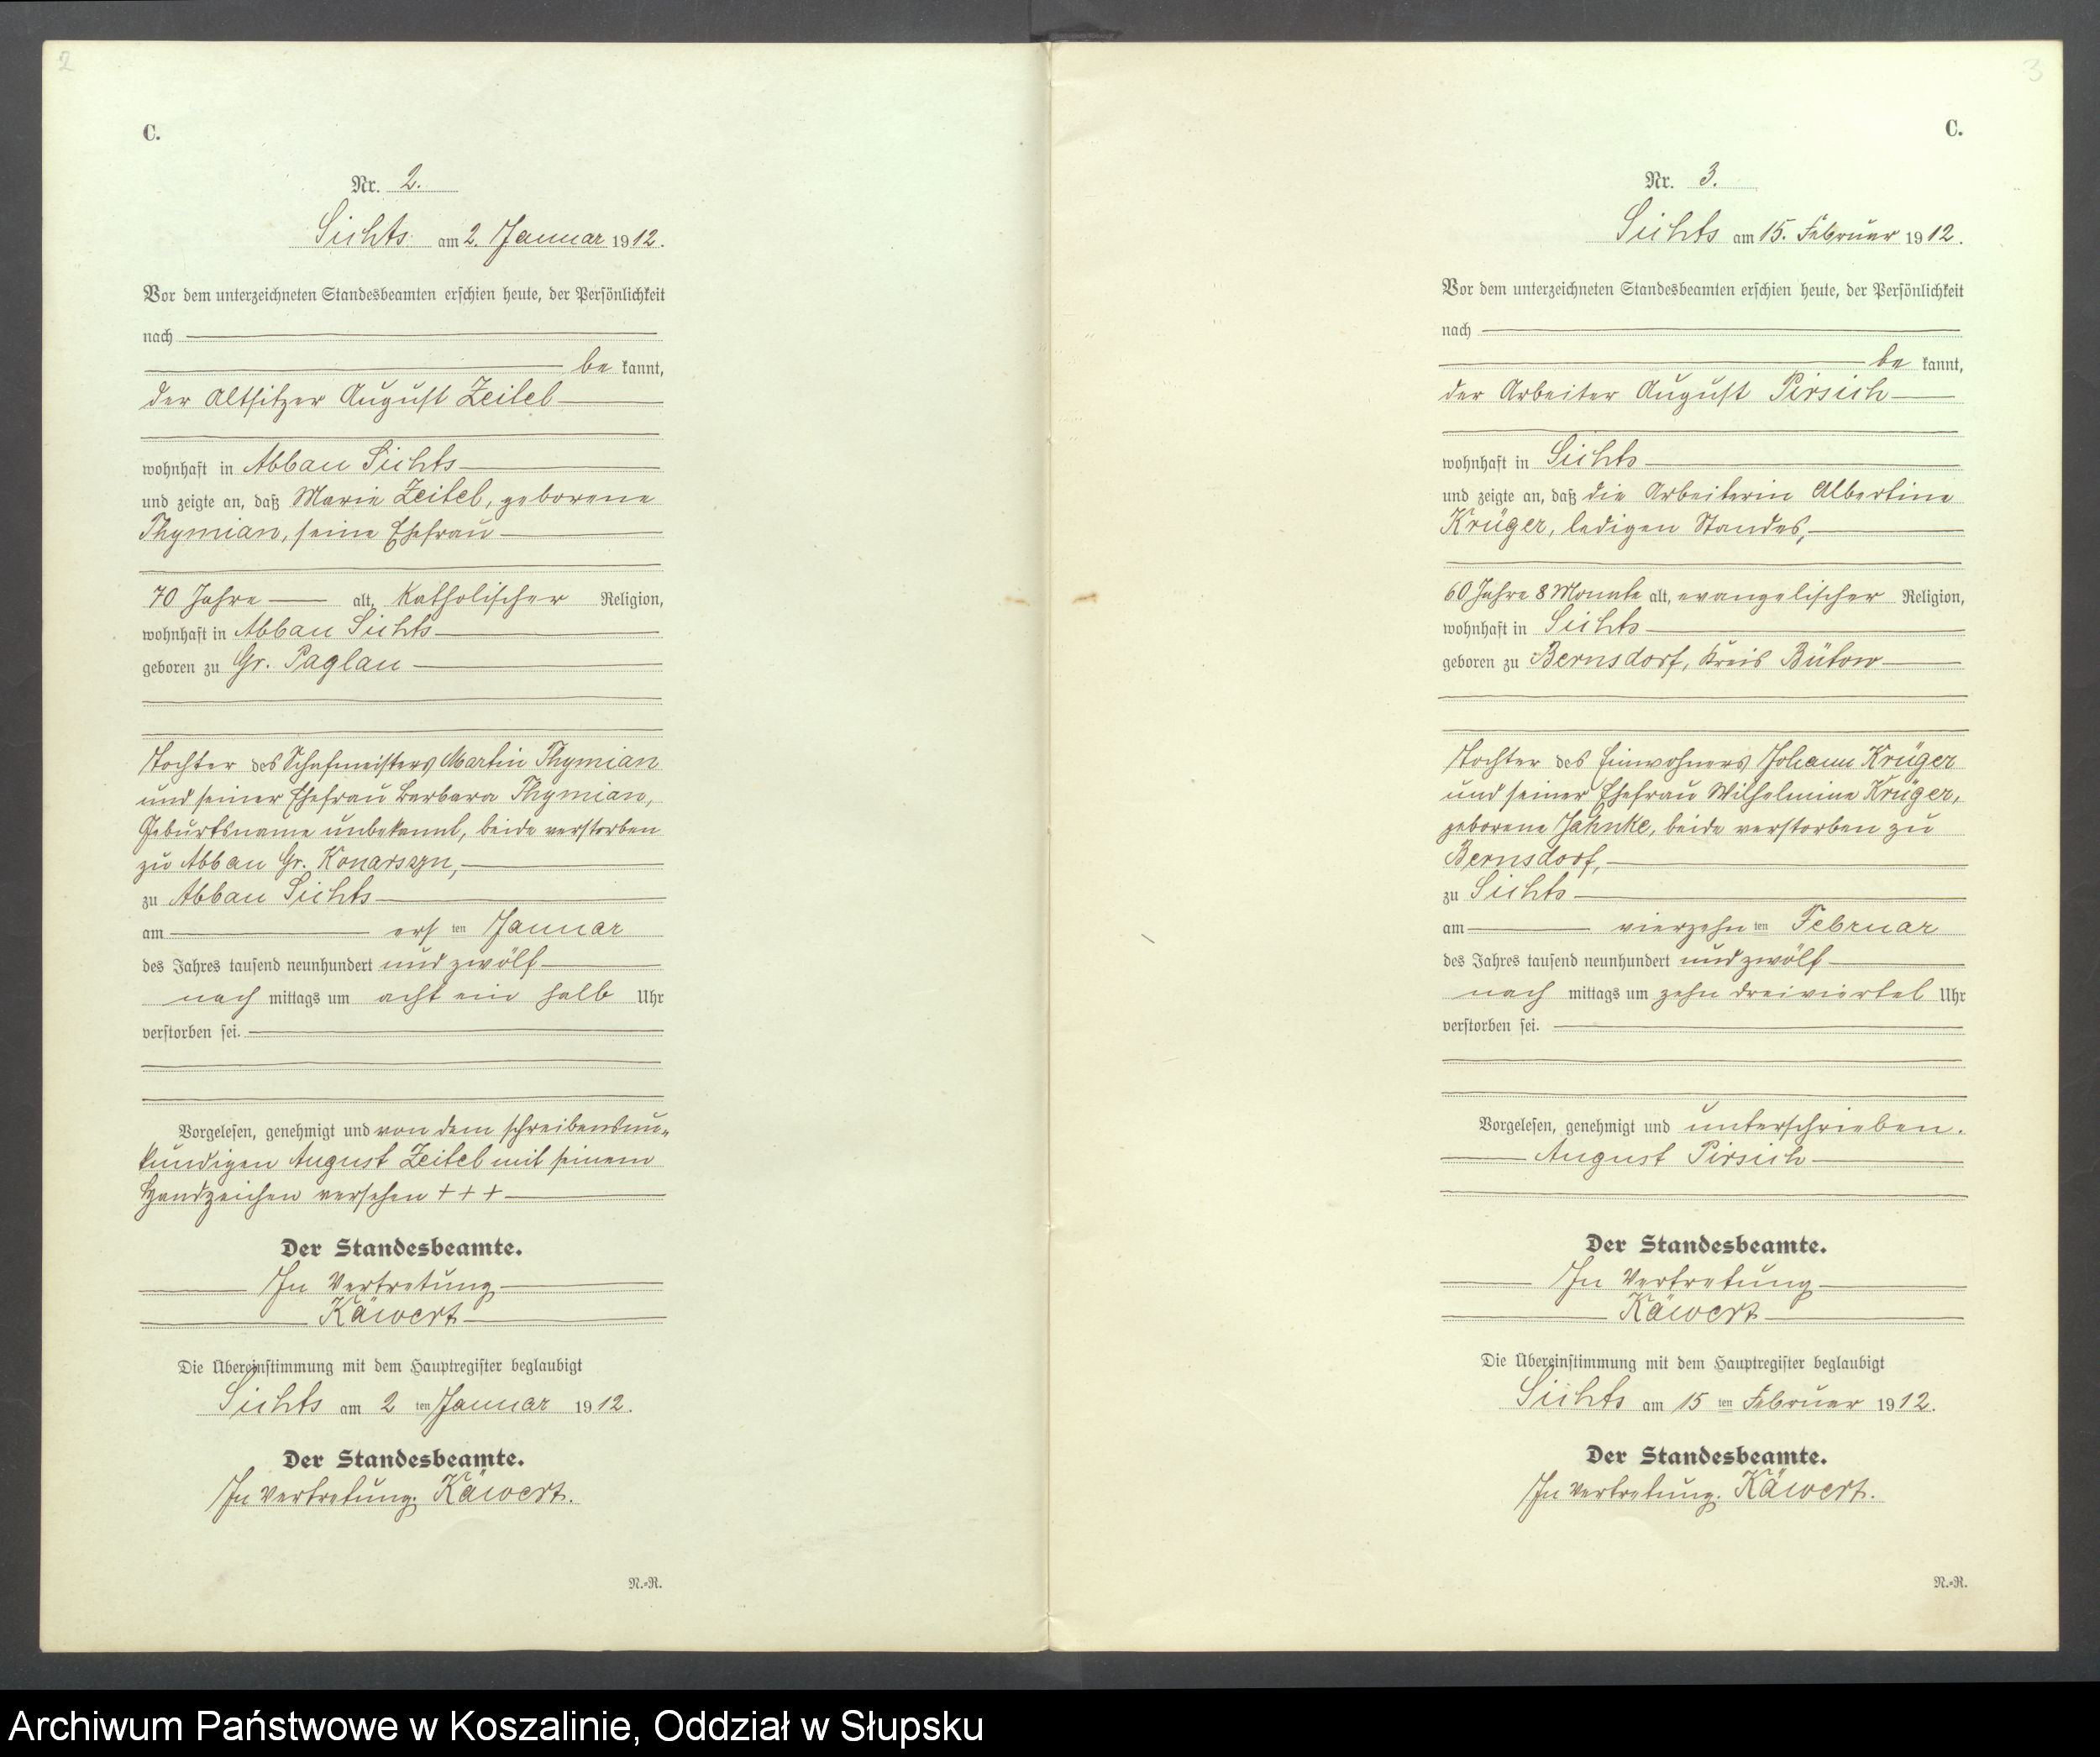 2
C.
Nr. 2.
Sichts am 2. Januar 1912.
Vor dem unterzeichneten Standesbeamten erschien heute, der Persönlichkeit
nach
be kannt,
der Altsitzer August Zeitel
wohnhaft in Abbau Sichts
und zeigte an, daß Marie Zeitel, geborene
Thymian, seine Ehefrau
70 Jahre alt, katholischer Religion,
wohnhaft in Abbau Sichts
geboren zu Gr. Paglau
Tochter des Schafmeisters Martin Thymian
und seiner Ehefrau Barbara Thymian,
Geburtsname unbekannt, beide verstorben
zu Abbau Gr. Konarszyn,
zu Abbau Sichts
am ersten Januar
des Jahres tausend neunhundert und zwölf
nach mittags um acht ein halb Uhr
verstorben sei.
Vorgelesen, genehmigt und von dem schreibensun-
kundigen August Zeitel mit seinem
Handzeichen versehen + + +
Der Standesbeamte.
In Vertretung
Käwert
Die Übereinstimmung mit dem Hauptregister beglaubigt
Sichts am 2 ten Januar 1912.
Der Standesbeamte.
In Vertretung. Käwert.
N.-R.
3
C.
Nr. 3.
Sichts am 15. Februar 1912.
Vor dem unterzeichneten Standesbeamten erschien heute, der Persönlichkeit
nach
be kannt,
der Arbeiter August Pirsich
wohnhaft in Sichts
und zeigte an, daß die Arbeiterin Albertine
Krüger, ledigen Standes,
60 Jahre 8 Monate alt, evangelischer Religion,
wohnhaft in Sichts
geboren zu Bernsdorf, Kreis Bütow
Tochter des Einwohners Johann Krüger
und seiner Ehefrau Wilhelmine Krüger,
geborene Jahnke, beide verstorben zu
Bernsdorf,
zu Sichts
am vierzehn ten Februar
des Jahres tausend neunhundert und zwölf
nach mittags um zehn dreiviertel Uhr
verstorben sei.
Vorgelesen, genehmigt und unterschrieben.
August Pirsich
Der Standesbeamte.
In Vertretung
Käwert
Die Übereinstimmung mit dem Hauptregister beglaubigt
Sichts am 15 ten Februar 1912.
Der Standesbeamte.
In Vertretung. Käwert.
N.-R.
Archiwum Państwowe w Koszalinie, Oddział w Słupsku